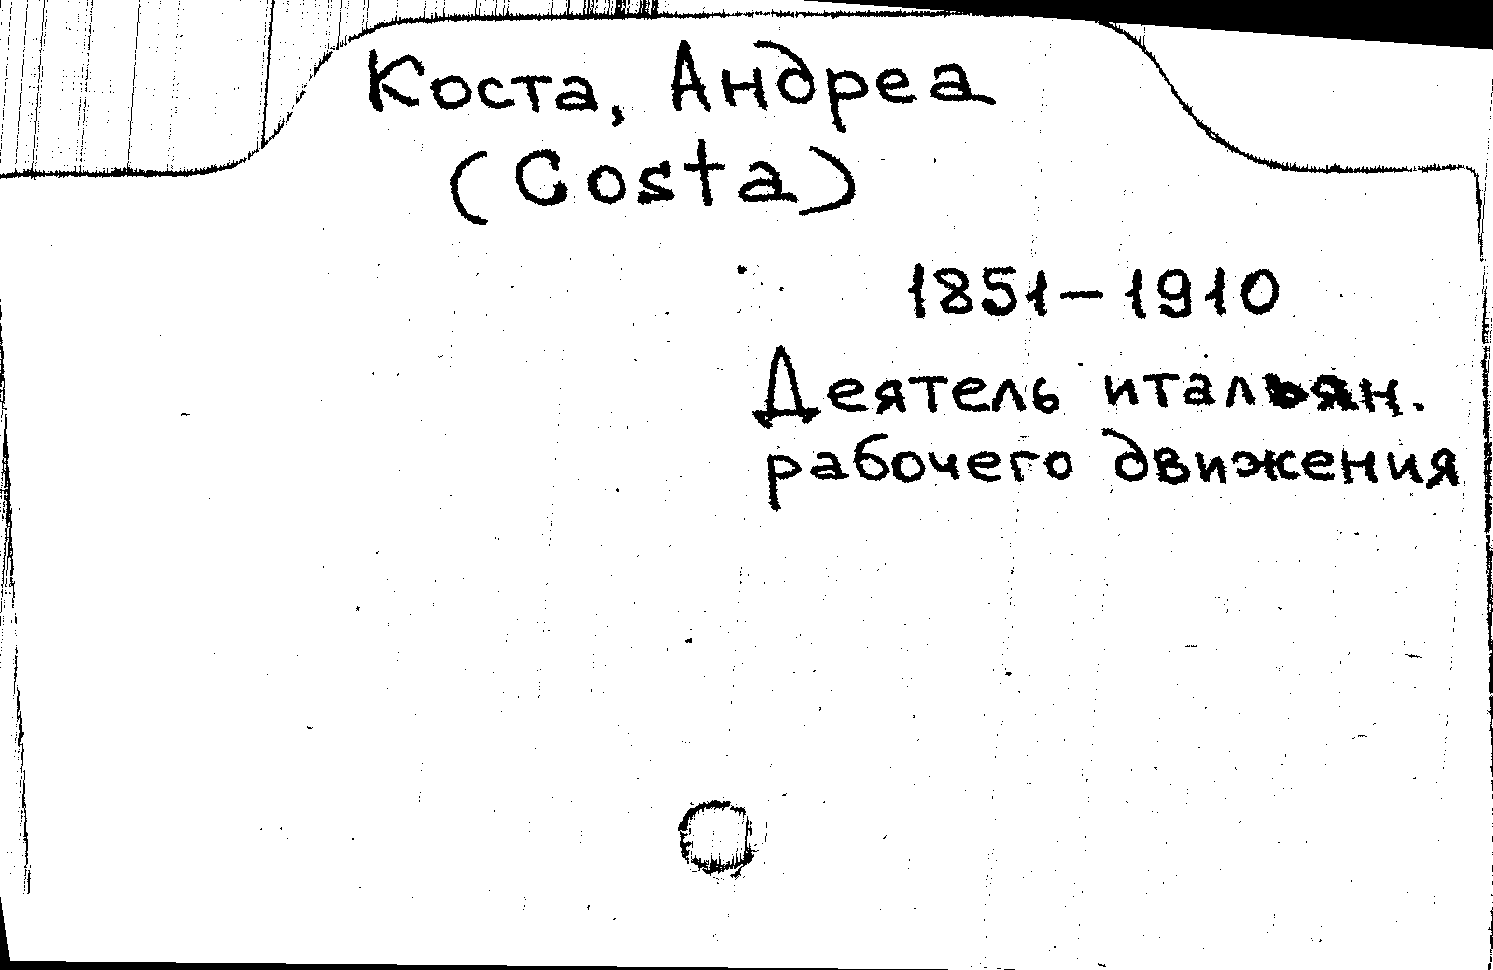 Коста, Андреа
(Costa)
1851-1910
Деятель итальян.
рабочего движения